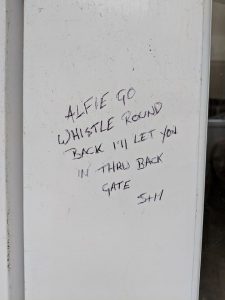 ALFIE GO
WHISTLE ROUND
BACK I'll LET YOU
IN THRU BACK
GATE